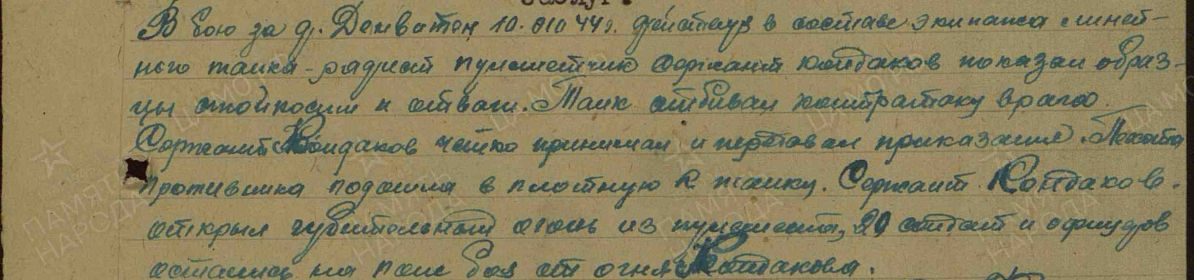 заслуг.
В бою за д. Денватен, 10.010 44г. действуя в составе экипажа линей-
ного танка-радист пулеметчик сержант Кондаков показал образ-
цы стойкости и отваги. Танк отбивал контратаку врага.
Сержант Кондаков четко принимал и передавал приказания. Пехота
противника подошла в плотную к танку. Сержант Кондаков.
открыл губительный огонь из пулемета, 20 солдат и офицеров
остались на поле боя от огня Кондакова.